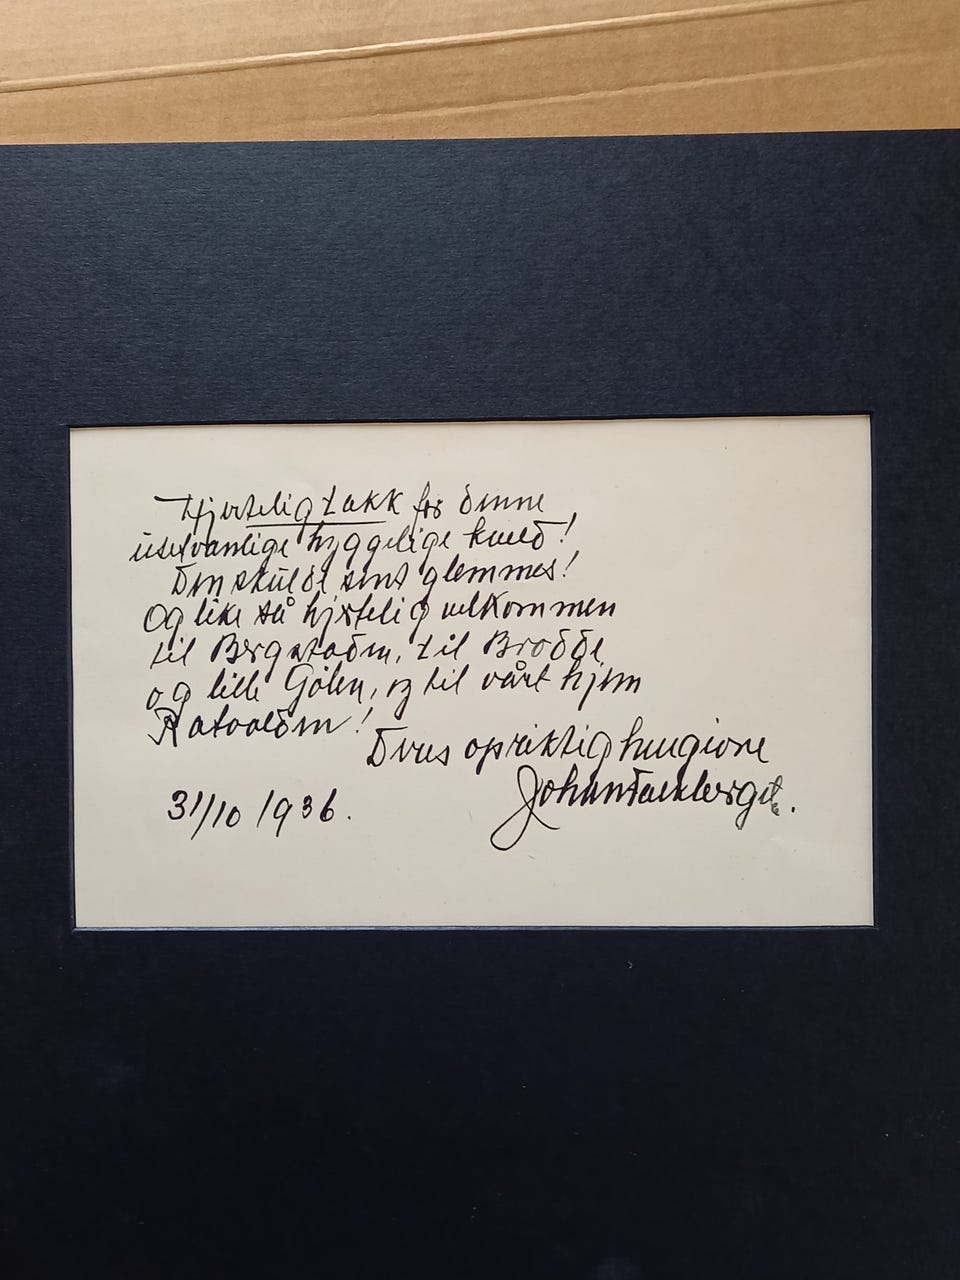 Hjertelig takk for denne
usedvanlige hyggelige kveld!
Den skulde sent glemmes!
Og like så hjertelig velkommen
til Bergstaden, til Brodde
og lille Gölin, og til vårt hjem
Ratvolden!
Deres opriktig hengivne
Johan Falkberget.
31/10 1936.